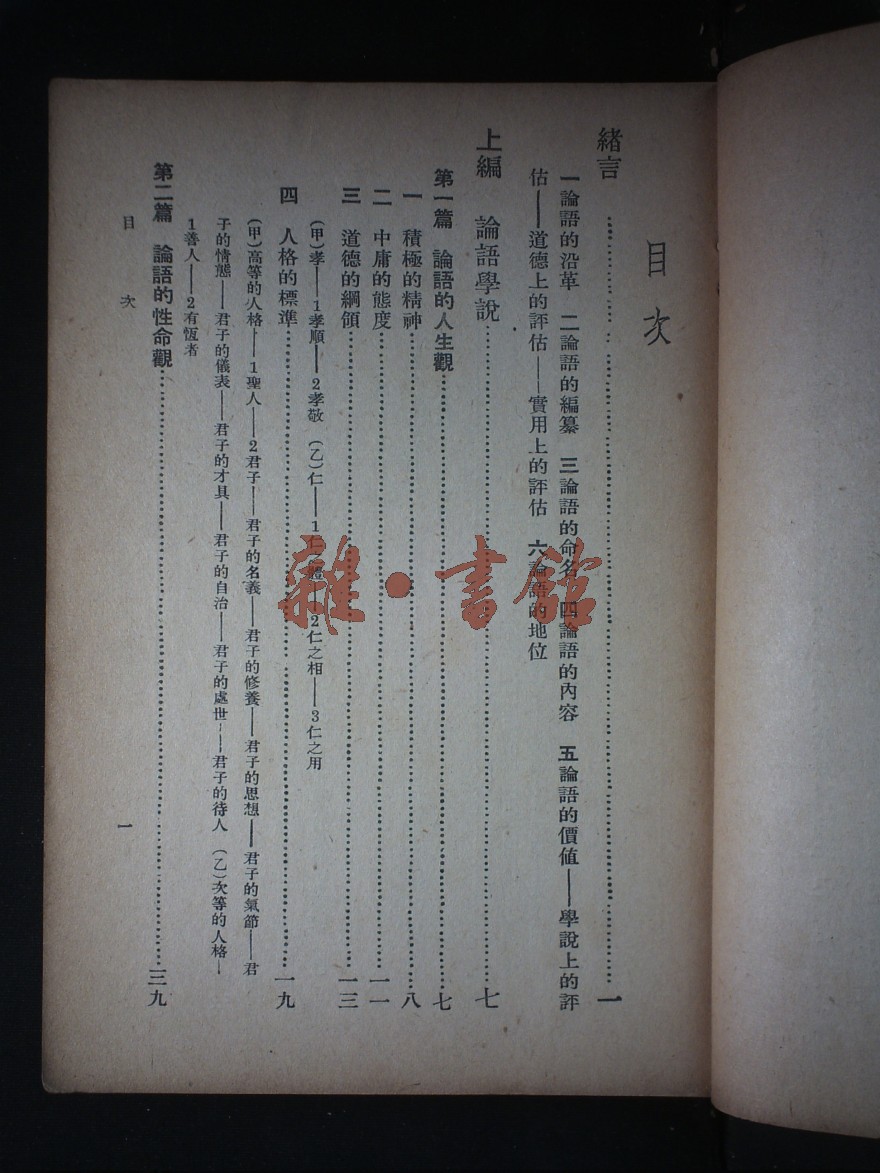 目次
緒言…………………………一
一論語的沿革 二論語的編纂 三論語的命名 四論語的內容 五論語的價值——學說上的評
估——道德上的評估——實用上的評估 六論語的地位
上編 論語學說…………………………七
第一篇 論語的人生觀…………………………七
一 積極的精神…………………………八
二 中庸的態度…………………………一一
三 道德的綱領…………………………一三
(甲)孝——1孝順——2孝敬 (乙)仁——1仁之體——2仁之相——3仁之用
四 人格的標準…………………………一九
(甲)高等的人格——1聖人——2君子——君子的名義——君子的修養——君子的思想——君子的氣節——君
子的情態——君子的儀表——君子的才具——君子的自治——君子的處世——君子的待人 (乙)次等的人格—
1善人——2有恆者
第二篇 論語的性命觀…………………………三九
目次
一
雜·書館